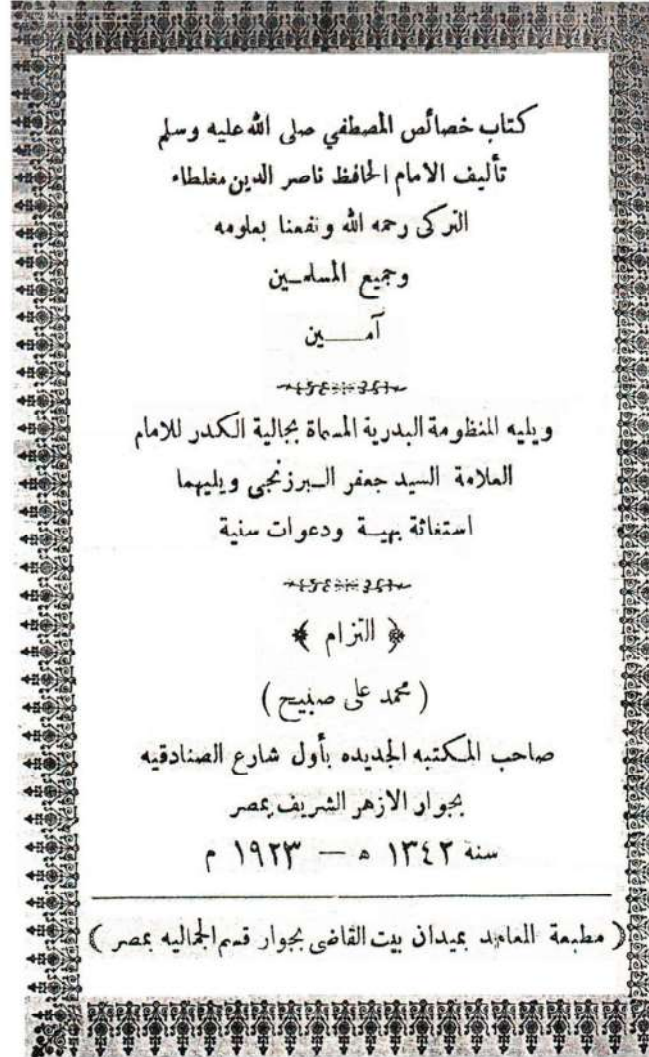 كتاب خصائص المصطفي صلى الله عليه وسلم
تأليف الامام الحافظ ناصر الدين مغلطاء
التركى رحمه الله ونفعنا بعلومه
وجميع المسلمين
آمين
ويليه المنظومة البدرية المسماة بجالية الكدر للامام
العلامة السيد جعفر البرزنجى ويليهما
استغاثة بهية ودعوات سنية
﴿ التزام ﴾
( محمد على صبيح )
صاحب المكتبه الجديده بأول شارع الصنادقيه
بجوار الازهر الشريف بمصر
سنة ١٣٤٢ ه — ١٩٢٣ م
( مطبعة المعاهد بميدان بيت القاضى بجوار قسم الجماليه بمصر )